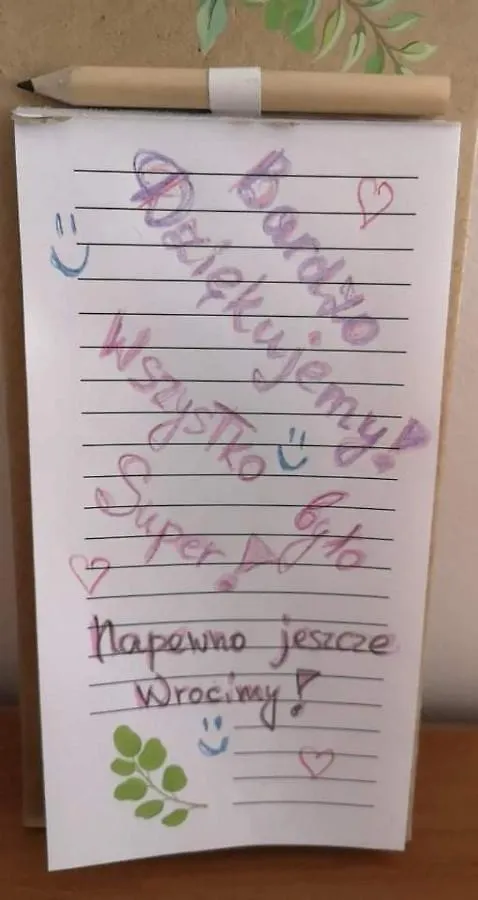 Bardzo
Dziękujemy!
Wszystko
było
Super!
Napewno jeszcze
wrocimy!